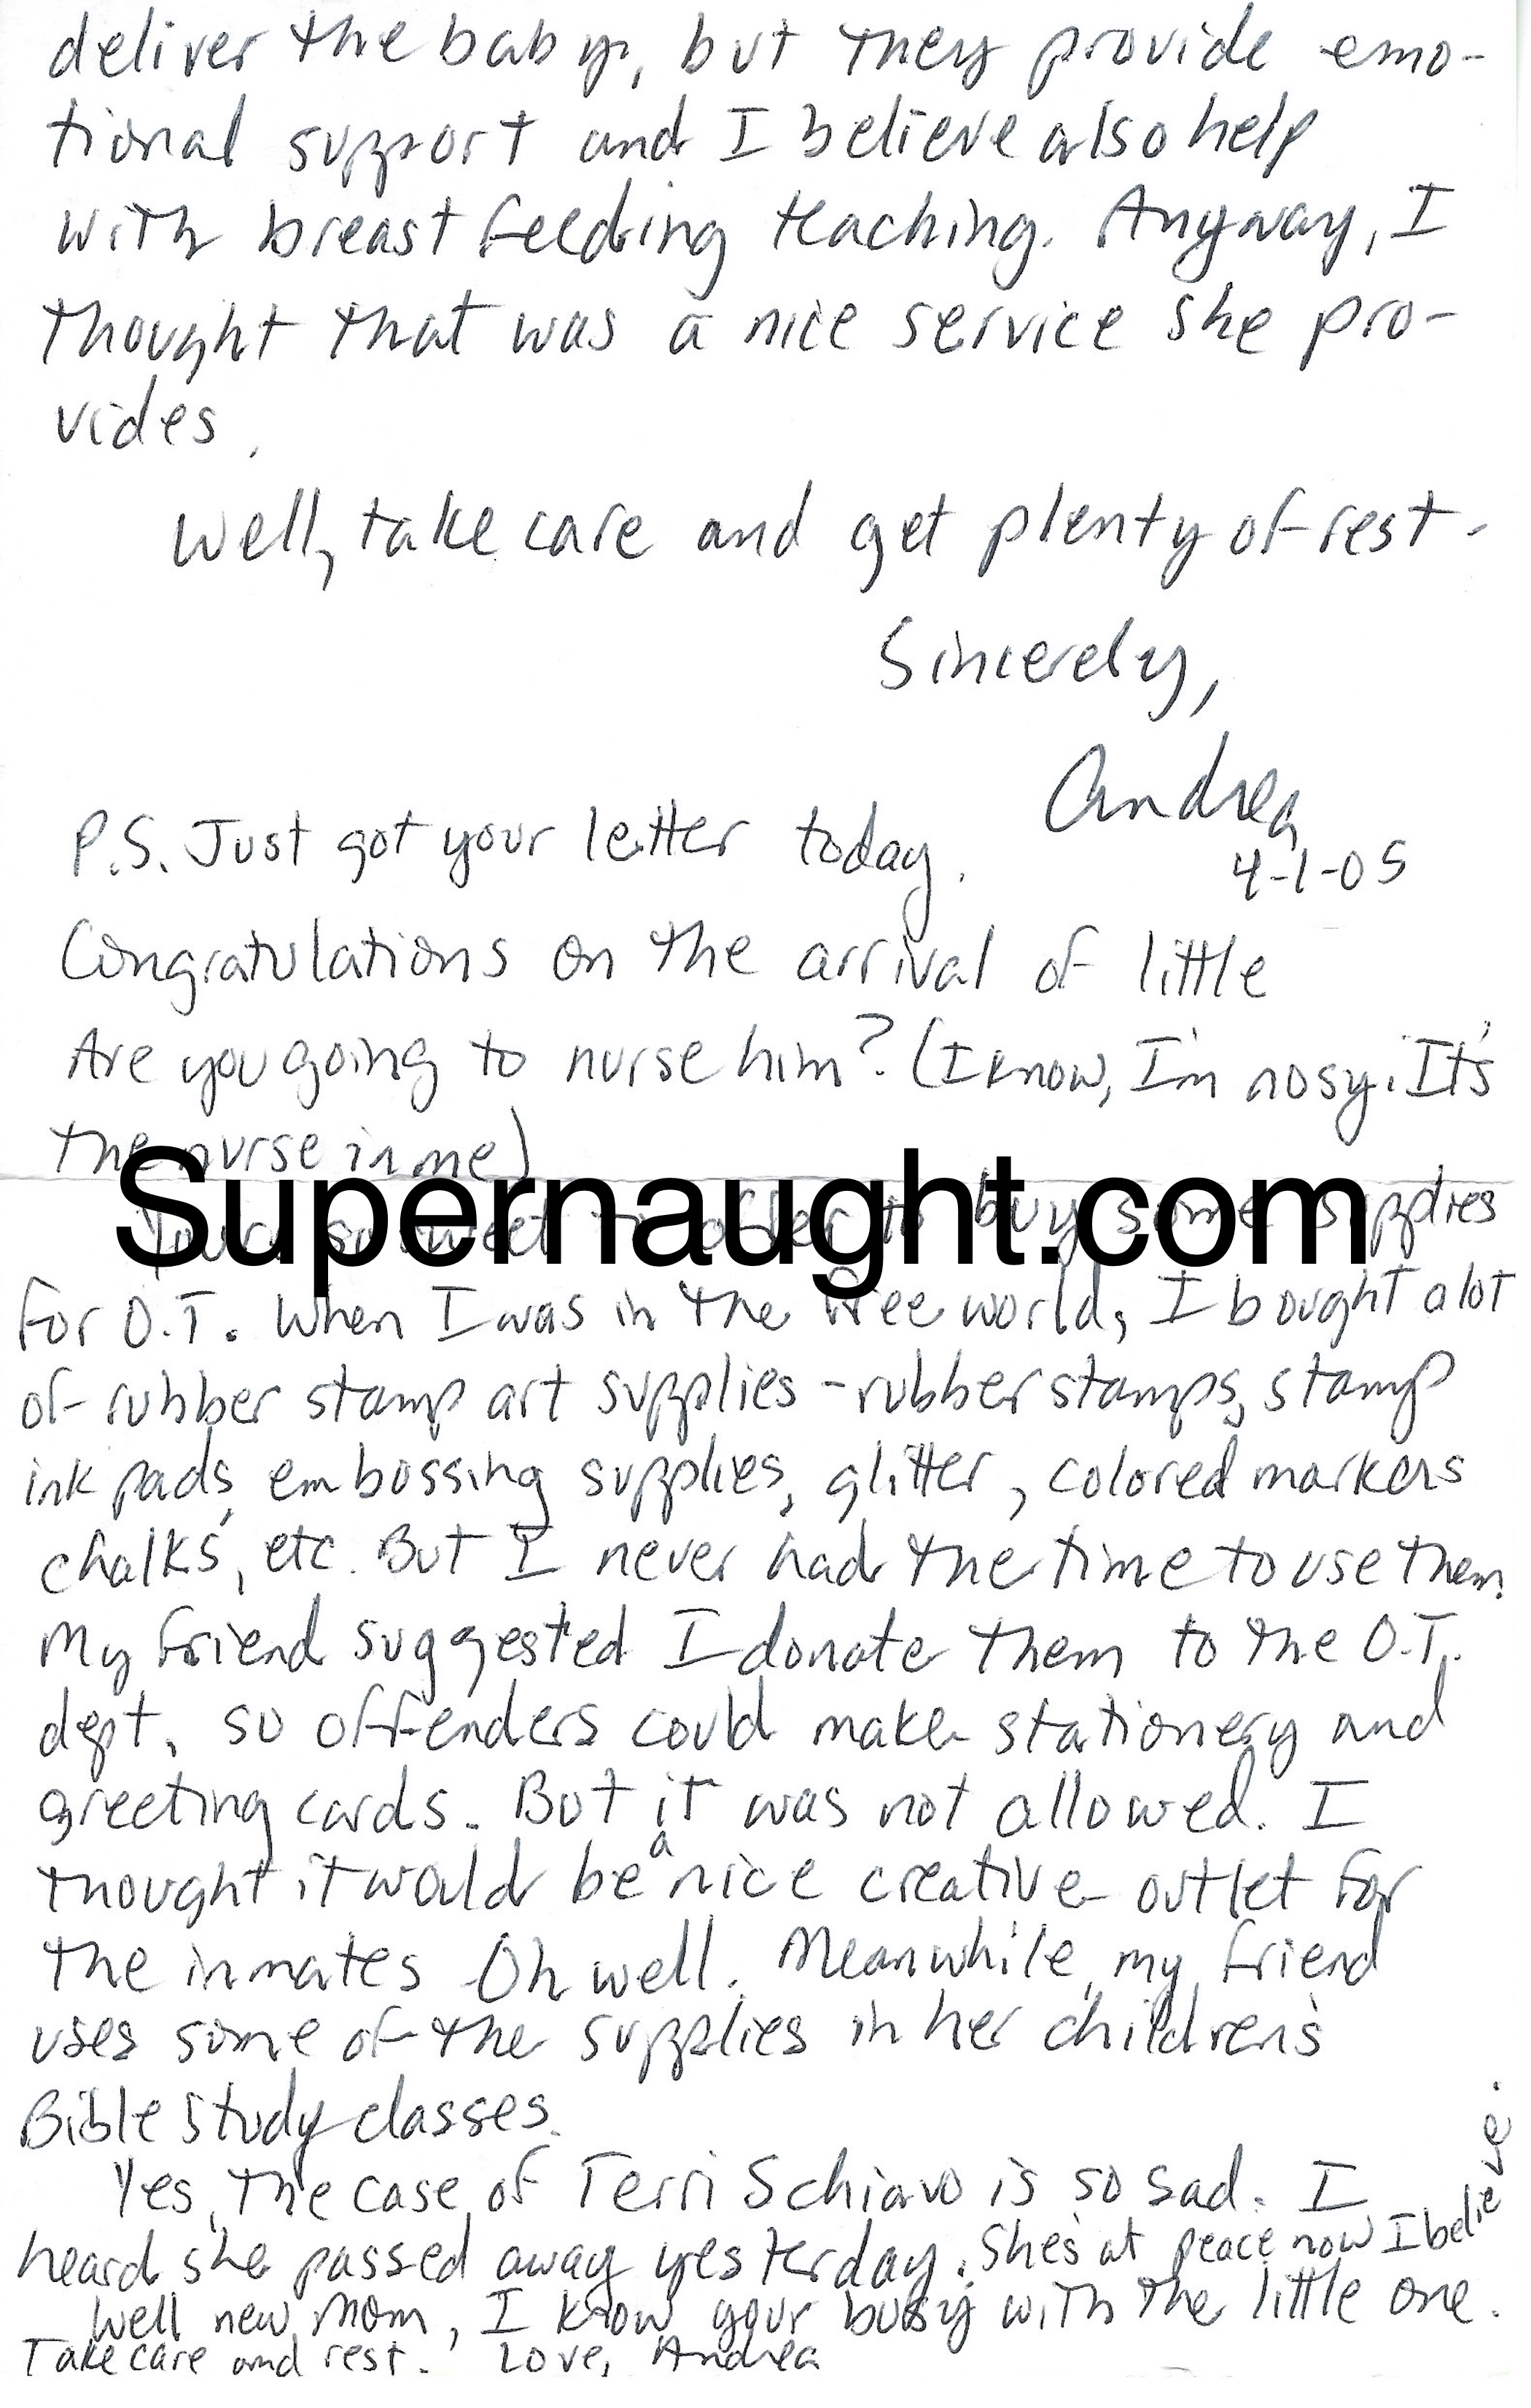 deliver the baby, but they provide emo-
tional support and I believe also help
with breast feeding teaching. Anyway, I
thought that was a nice service she pro-
vides.
Well, take care and get plenty of rest.
Sincerely,
Andrea
4-1-05
P.S. Just got your letter today.
Congratulations on the arrival of little
Are you going to nurse him? (I know, I'm nosy. It's
the nurse in me)
Supernaught.com
sweet to offer to buy some supplies
for O.T. When I was in the free world, I bought a lot
of rubber stamp art supplies - rubber stamps, stamp
ink pads, embossing supplies, glitter, colored markers
chalks, etc. But I never had the time to use them.
My friend suggested I donate them to the O.T.
dept. so offenders could make stationery and
greeting cards. But it was not allowed. I
thought it would be a nice creative outlet for
the inmates Oh well. Meanwhile, my friend
uses some of the supplies in her children's
Bible study classes.
Yes, the case of Terri Schiavo is so sad. I
heard she passed away yesterday. She's at peace now I believe.
Well new mom, I know your busy with the little one.
Take care and rest. Love, Andrea